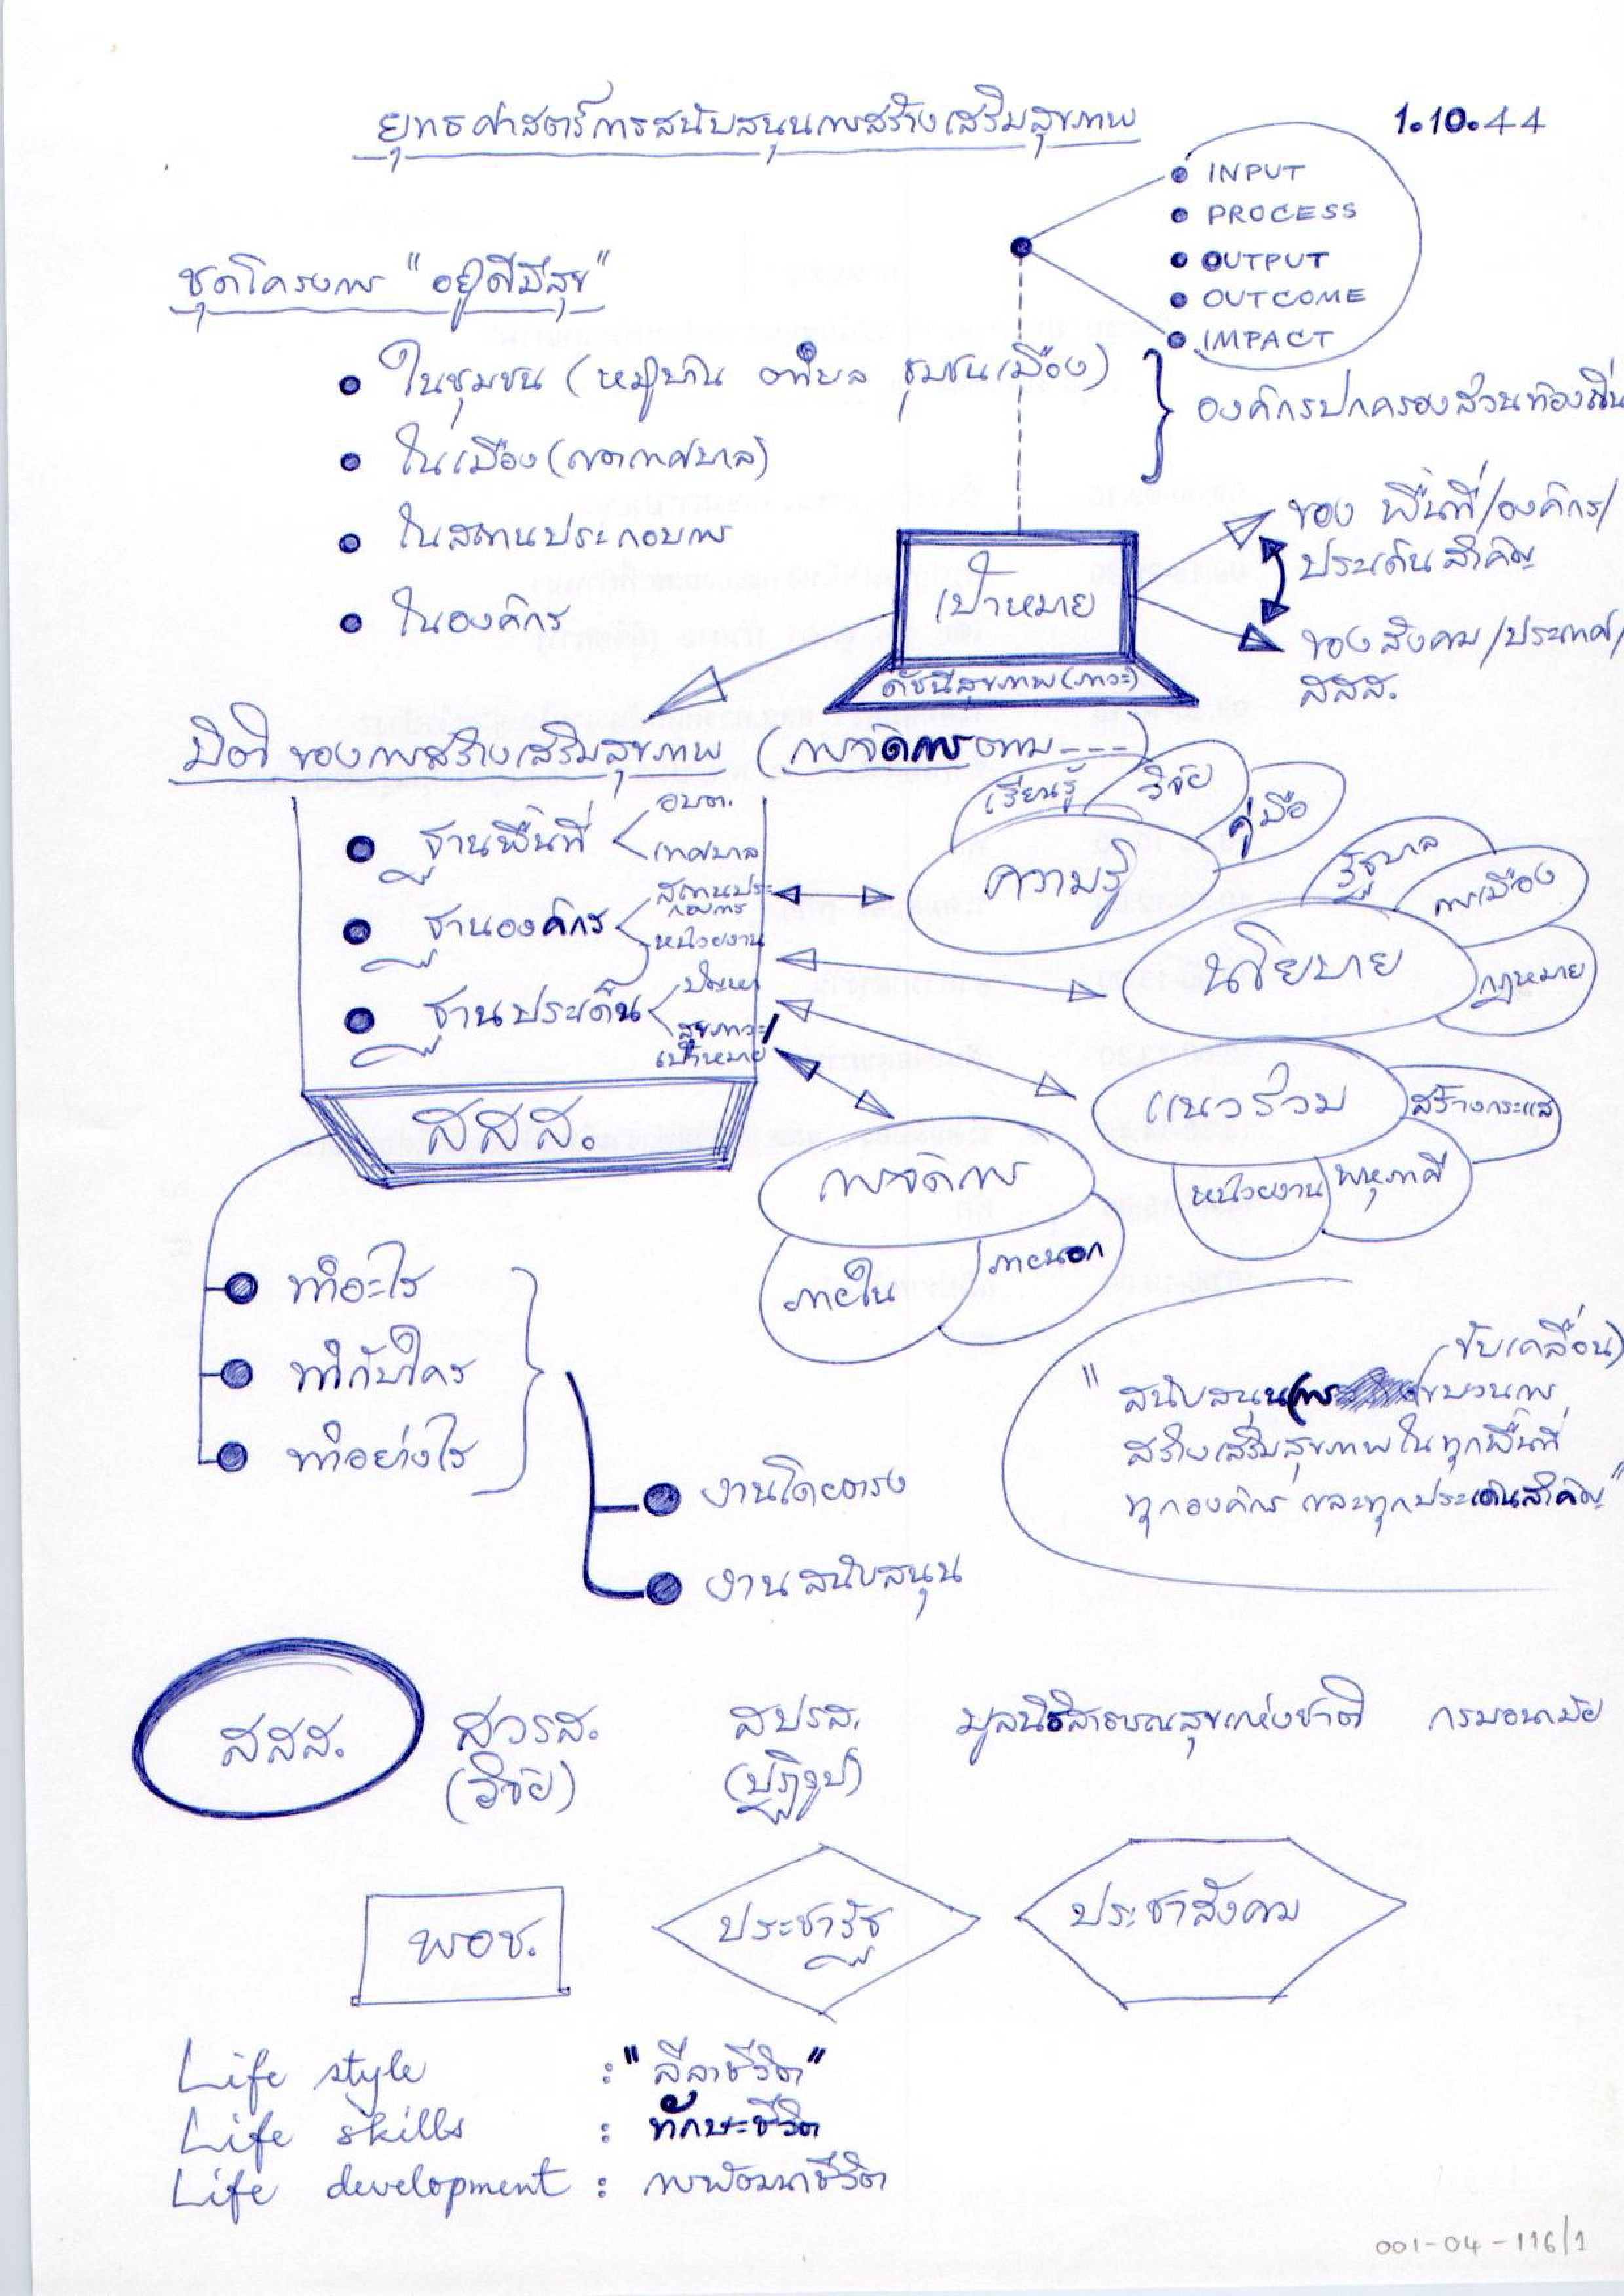 ยุทธศาสตร์การสนับสนุนการสร้างเสริมสุขภาพ
1.10.44
INPUT
PROCESS
OUTPUT
OUTCOME
IMPACT
ชุดโครงการ "อยู่ดีมีสุข"
ในชุมชน (หมู่บ้าน ตำบล ชุมชนเมือง)
ในเมือง (เขตเทศบาล)
องค์กรปกครองส่วนท้องถิ่น
ในสถานประกอบการ
ในองค์กร
เป้าหมาย
ดัชนีสุขภาพ(ภาวะ)
ของ พื้นที่/องค์กร/
ประเด็นสำคัญ
ของสังคม/ประเทศ/
สสส.
มิติของการสร้างเสริมสุขภาพ (การจัดการตาม---)
ฐานพื้นที่
อบต.
เทศบาล
ฐานองค์กร
สถานประ
กอบการ
หน่วยงาน
ฐานประเด็น
ปัญหา
สุขภาวะ/
เป้าหมาย
สสส.
เรียนรู้
วิจัย
คู่มือ
ความรู้
รัฐบาล
การเมือง
กฎหมาย
นโยบาย
แนวร่วม
สร้างกระแส
หน่วยงาน
พหุภาคี
การจัดการ
ภายใน
ภายนอก
ทำอะไร
ทำกับใคร
ทำอย่างไร
งานโดยตรง
งานสนับสนุน
ขับเคลื่อน)
"สนับสนุน(การ ขบวนการ
สร้างเสริมสุขภาพในทุกพื้นที่
ทุกองค์กร และทุกประเด็นสำคัญ"
สสส. สวรส. สปรส. มูลนิธิสาธารณสุขแห่งชาติ กรมอนามัย
(วิจัย) (ปฏิรูป)
พอช. ประชารัฐ ประชาสังคม
Life style : "ลีลาชีวิต"
Life skills : ทักษะชีวิต
Life development : การพัฒนาชีวิต
001-04-116/1